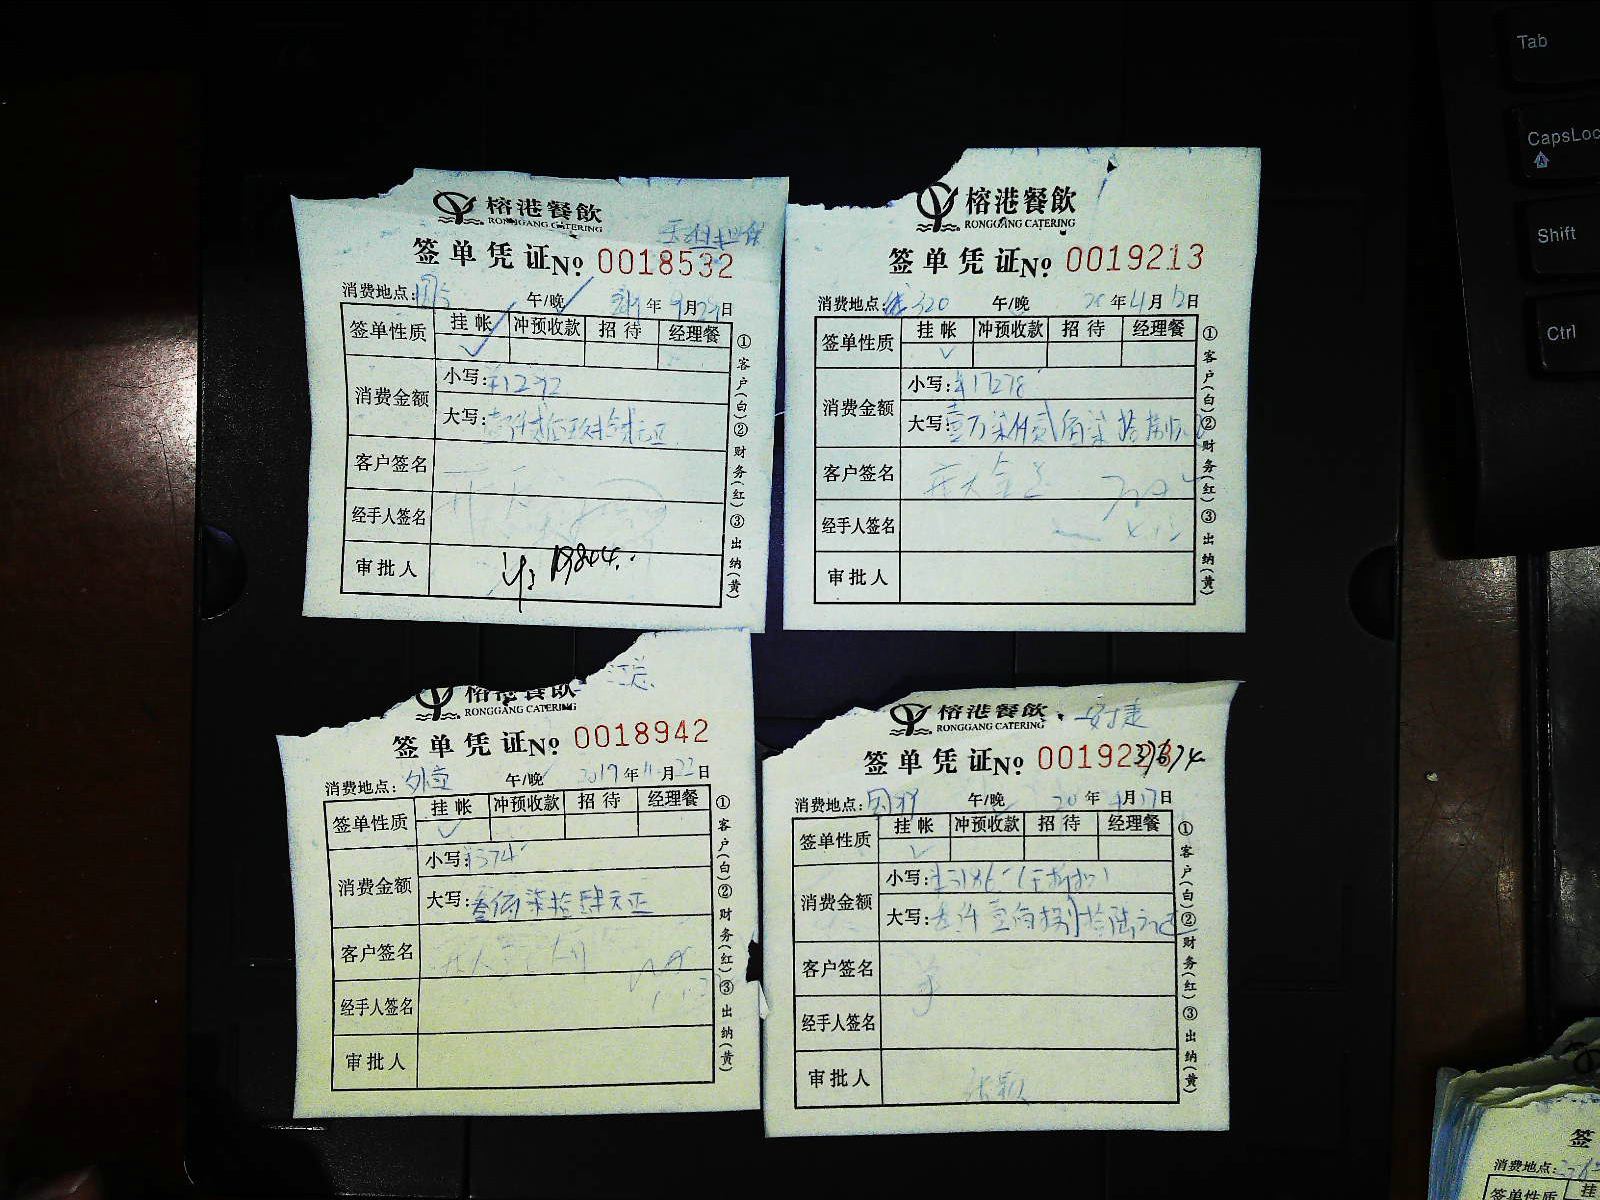 榕港餐飲
RONGGANG CATERING
签单凭证No 0018532
消费地点: 午/晚 年9月29日
签单性质 挂帐 冲预收款 招待 经理餐
消费金额 小写:¥1292
大写:壹仟贰佰玖拾贰元正
客户签名
经手人签名
审批人 19844.
①客户(白)②财务(红)③出纳(黄)
榕港餐飲
RONGGANG CATERING
签单凭证No 0019213
消费地点: 320 午/晚 20年4月12日
签单性质 挂帐 冲预收款 招待 经理餐
消费金额 小写:¥17278
大写:壹万柒仟贰佰柒拾捌
客户签名
经手人签名
审批人
①客户(白)②财务(红)③出纳(黄)
江总
榕港餐飲
RONGGANG CATERING
签单凭证No 0018942
消费地点:外卖 午/晚 2019年11月22日
签单性质 挂帐 冲预收款 招待 经理餐
消费金额 小写:¥374
大写:叁佰柒拾肆元正
客户签名
经手人签名
审批人
①客户(白)②财务(红)③出纳(黄)
榕港餐飲
RONGGANG CATERING
签单凭证No 00192
消费地点: 午/晚 20年4月17日
签单性质 挂帐 冲预收款 招待 经理餐
消费金额 小写:¥3186
大写:叁仟壹佰捌拾陆元正
客户签名
经手人签名
审批人 张颖
①客户(白)②财务(红)③出纳(黄)
Tab
CapsLoc
Shift
Ctrl
签
消费地点:
签单性质 挂